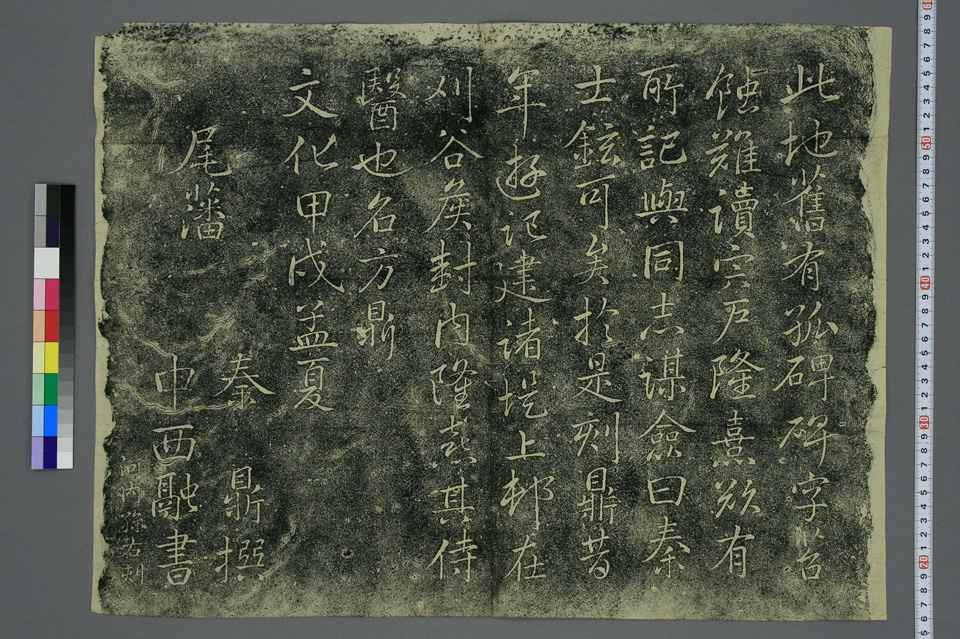 此地舊有孤碑碑字
蝕難讀宍戶隆熹欲有
所記與同志謀僉曰秦
士鉉可矣於是刻鼎昔
年遊記建諸堤上邨在
刈谷侯封內隆熹其侍
醫也名方鼎
文化甲戌孟夏
尾藩
秦鼎撰
中西融書
河內孫右刻